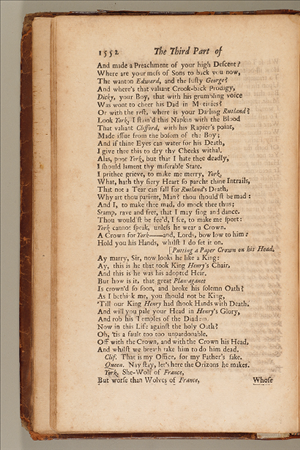 1552 The Third Part of
And made a Preachment of your high Descent?
Where are your mess of Sons to back you now,
The wanton Edward, and the lusty George?
And where's that valiant Crook-back Prodigy,
Dicky, your Boy, that with his grumbling voice
Was wont to cheer his Dad in Mutinies?
Or with the rest, where is your Darling Rutland?
Look York, I stain'd this Napkin with the Blood
That valiant Clifford, with his Rapier's point,
Made issue from the bosom of the Boy;
And if thine Eyes can water for his Death,
I give thee this to dry thy Cheeks withal.
Alas, poor York, but that I hate thee deadly,
I should lament thy miserable State.
I prithee grieve, to make me merry, York,
What, hath thy fiery Heart so parcht thine Intrails,
That not a Tear can fall for Rutland's Death,
Why art thou patient, Man? thou should'st be mad:
And I, to make thee mad, do mock thee thus:
Stamp, rave and fret, that I may sing and dance.
Thou would'st be fee'd, I see, to make me sport:
York cannot speak, unless he wear a Crown.
A Crown for York——and, Lords, bow low to him:
Hold you his Hands, whilst I do set it on.
[Putting a Paper Crown on his Head.
Ay marry, Sir, now looks he like a King:
Ay, this is he that took King Henry's Chair,
And this is he was his adopted Heir.
But how is it, that great Plantagenet
Is crown'd so soon, and broke his solemn Oath?
As I bethink me, you should not be King,
'Till our King Henry had shook Hands with Death.
And will you pale your Head in Henry's Glory,
And rob his Temples of the Diadem,
Now in this Life against the holy Oath?
Oh, 'tis a fault too too unpardonable.
Off with the Crown, and with the Crown his Head,
And whilst we breath take him to do him dead.
Clif. That is my Office, for my Father's sake.
Queen. Nay stay, let's here the Orizons he makes.
York. She-Wolf of France,
But worse than Wolves of France,
Whose